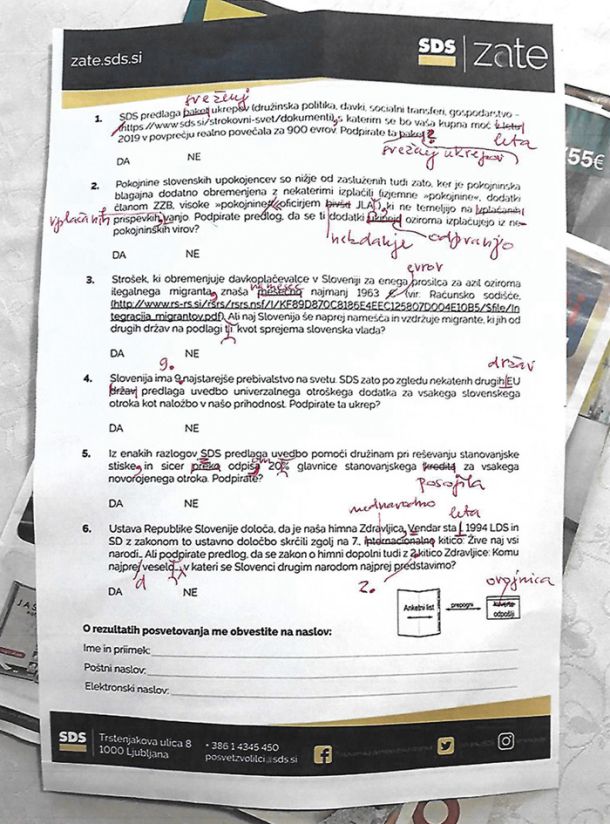 zate.sds.si
SDS zate
svežnj
1. SDS predlaga paket ukrepov (družinska politika, davki, socialni transferi, gospodarstvo -
(https://www.sds.si/strokovni-svet/dokumenti), s katerim se bo vaša kupna moč
leta
2019 v povprečju realno povečala za 900 evrov. Podpirate ta paket?
svežnj ukrepov
DA NE
55€
2. Pokojnine slovenskih upokojencev so nižje od zasluženih tudi zato, ker je pokojninska
blagajna dodatno obremenjena z nekaterimi izplačili (izjemne »pokojnine«, dodatki
članom ZZB, visoke »pokojnine« oficirjem bivše JLA), ki ne temeljijo na vplačanih
vplačanih
prispevkih. Podpirate predlog, da se ti dodatki ukinejo oziroma izplačujejo iz ne-
pokojninskih virov?
nekdanje odpravijo
DA NE
evrov
3. Strošek, ki obremenjuje davkoplačevalce v Sloveniji za enega prosilca za azil oziroma
na mesec
ilegalnega migranta, znaša mesečno najmanj 1963 € (vir: Računsko sodišče,
(http://www.rs-rs.si/rsrs/rsrs.nsf/I/KF89D870C8186E4EEC125807D004E10B5/$file/In
tegracija_migrantov.pdf). Ali naj Slovenija še naprej namešča in vzdržuje migrante, ki jih od
drugih držav na podlagi t.i. kvot sprejema slovenska vlada?
DA NE
9.
držav
4. Slovenija ima 9 najstarejše prebivalstvo na svetu. SDS zato po zgledu nekaterih drugih EU
držav predlaga uvedbo univerzalnega otroškega dodatka za vsakega slovenskega
otroka kot naložbo v našo prihodnost. Podpirate ta ukrep?
DA NE
5. Iz enakih razlogov SDS predlaga uvedbo pomoči družinam pri reševanju stanovanjske
stiske in sicer preko odpisa 20% glavnice stanovanjskega kredita za vsakega
novorojenega otroka. Podpirate?
posojila
DA NE
mednarodno
leta
6. Ustava Republike Slovenije določa, da je naša himna Zdravljica. Vendar sta 1994 LDS in
SD z zakonom to ustavno določbo skrčili zgolj na 7. internacionalno kitico: Žive naj vsi
narodi. Ali podpirate predlog, da se zakon o himni dopolni tudi z 2 kitico Zdravljice: Komu
najprej veselo..., v kateri se Slovenci drugim narodom najprej predstavimo?
d
2.
DA NE
ovojnica
Anketni list
prepogni
kuverta
odpošlji
O rezultatih posvetovanja me obvestite na naslov:
Ime in priimek:
Poštni naslov:
Elektronski naslov:
SDS
Trstenjakova ulica 8
1000 Ljubljana
• 386 1 4345 450
posvetzvolilci@sds.si